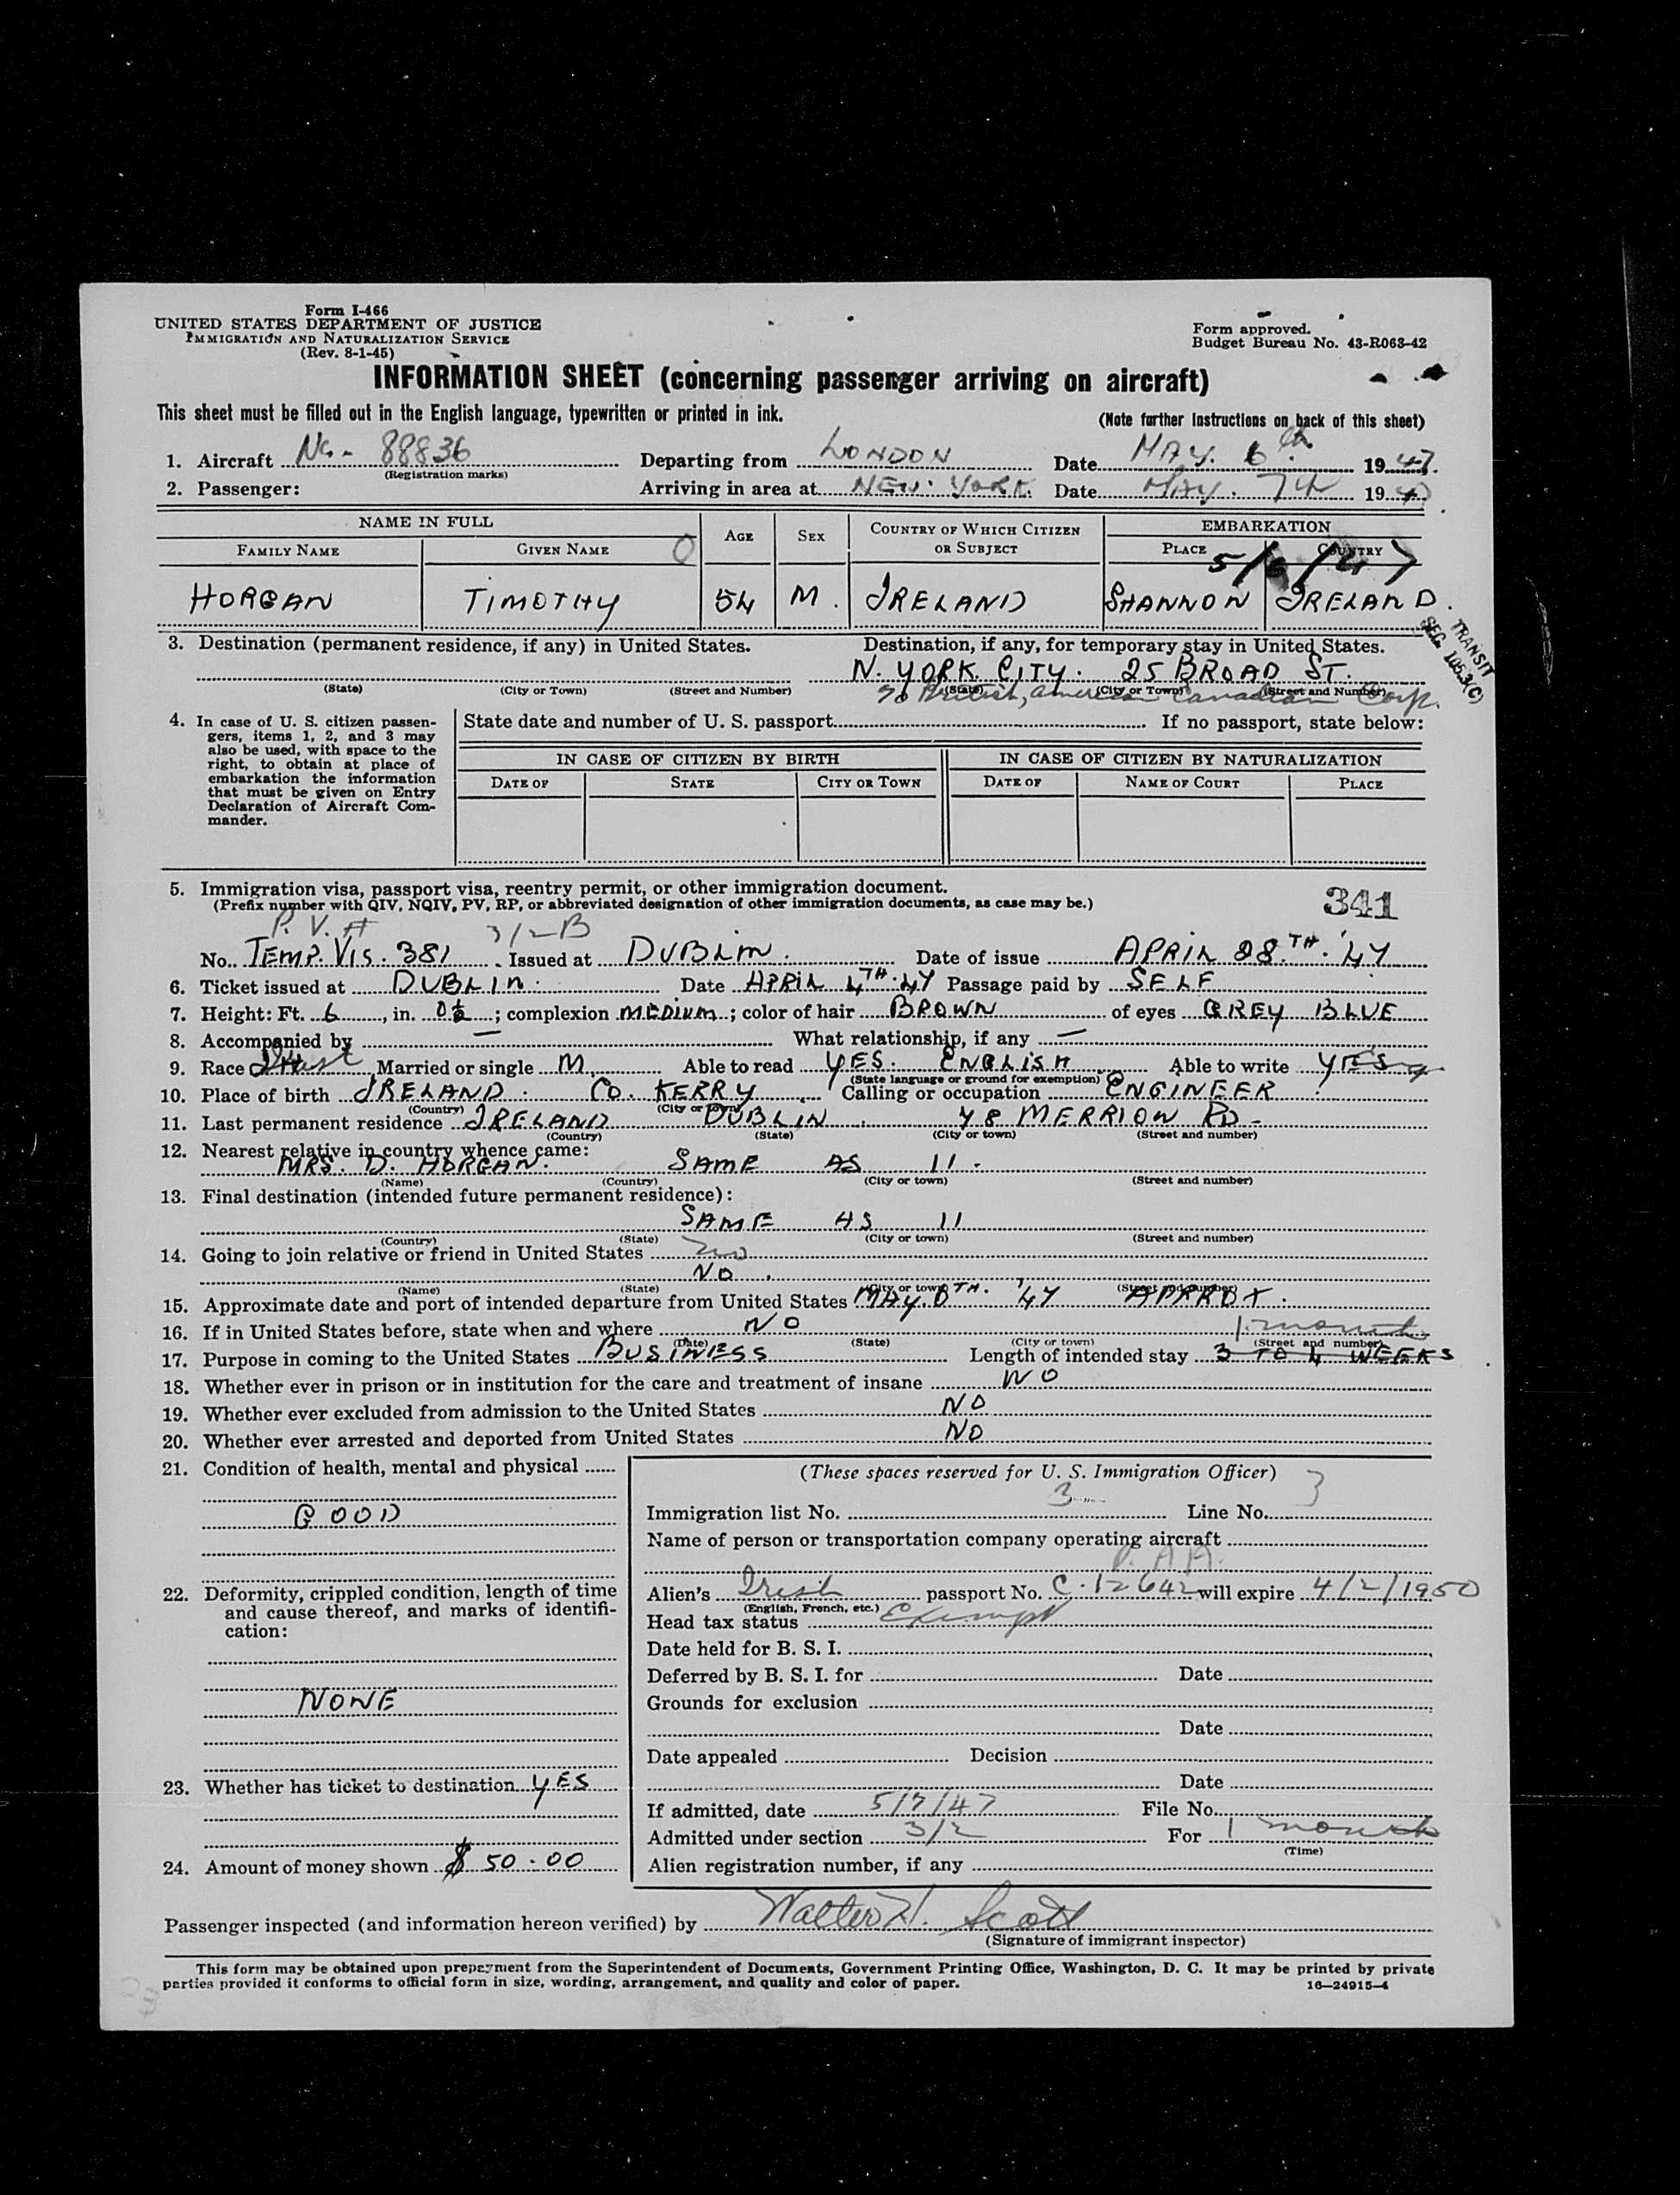 Form I-466
UNITED STATES DEPARTMENT OF JUSTICE
IMMIGRATION AND NATURALIZATION SERVICE
(Rev. 8-1-45)
Form approved.
Budget Bureau No. 43-R063-42
INFORMATION SHEET (concerning passenger arriving on aircraft)
This sheet must be filled out in the English language, typewritten or printed in ink.
(Note further instructions on back of this sheet)
1. Aircraft Nc- 88836 Departing from LONDON Date MAY. 6th. 1947.
(Registration marks)
2. Passenger: Arriving in area at NEW YORK. Date MAY. 7th 1947
NAME IN FULL AGE SEX COUNTRY OF WHICH CITIZEN OR SUBJECT EMBARKATION
FAMILY NAME GIVEN NAME O PLACE COUNTRY
5/6/47
HORGAN TIMOTHY 54 M. IRELAND SHANNON IRELAND.
TRANSIT
SEC. 105.3(C)
3. Destination (permanent residence, if any) in United States. Destination, if any, for temporary stay in United States.
N. YORK. CITY. 25 BROAD ST.
(State) (City or Town) (Street and Number) (State) (City or Town) (Street and Number)
c/o British, American Canadian Corp.
4. In case of U. S. citizen passengers, items 1, 2, and 3 may also be used, with space to the right, to obtain at place of embarkation the information that must be given on Entry Declaration of Aircraft Commander.
State date and number of U. S. passport If no passport, state below:
IN CASE OF CITIZEN BY BIRTH IN CASE OF CITIZEN BY NATURALIZATION
DATE OF STATE CITY OR TOWN DATE OF NAME OF COURT PLACE
5. Immigration visa, passport visa, reentry permit, or other immigration document.
(Prefix number with QIV, NQIV, PV, RP, or abbreviated designation of other immigration documents, as case may be.)
341
P. V. # 3/2B
No. TEMP. VIS. 381 Issued at DUBLIN. Date of issue APRIL 28.TH. '47
6. Ticket issued at DUBLIN. Date APRIL 4TH. 47 Passage paid by SELF
7. Height: Ft. 6, in. 0½; complexion MEDIUM; color of hair BROWN of eyes GREY BLUE
8. Accompanied by — What relationship, if any —
9. Race Irish Married or single M. Able to read YES. ENGLISH Able to write YES
(State language or ground for exemption)
10. Place of birth IRELAND. CO. KERRY Calling or occupation ENGINEER.
(Country) (City or town)
11. Last permanent residence IRELAND DUBLIN 48 MERRION RD-
(Country) (State) (City or town) (Street and number)
12. Nearest relative in country whence came:
MRS. D. HORGAN. SAME AS 11.
(Name) (Country) (City or town) (Street and number)
13. Final destination (intended future permanent residence):
SAME AS 11
(Country) (State) (City or town) (Street and number)
14. Going to join relative or friend in United States no
NO.
(Name) (State) (City or town) (Street and number)
15. Approximate date and port of intended departure from United States MAY. 8TH. '47 APPROX.
16. If in United States before, state when and where NO
1. month
(Date) (State) (City or town) (Street and number)
17. Purpose in coming to the United States BUSINESS Length of intended stay 3 TO 4 WEEKS
18. Whether ever in prison or in institution for the care and treatment of insane NO
19. Whether ever excluded from admission to the United States NO
20. Whether ever arrested and deported from United States NO
21. Condition of health, mental and physical
GOOD
22. Deformity, crippled condition, length of time and cause thereof, and marks of identification:
NONE
23. Whether has ticket to destination YES
24. Amount of money shown $ 50.00
(These spaces reserved for U. S. Immigration Officer)
Immigration list No. 3 Line No. 3
Name of person or transportation company operating aircraft
P. A. A.
Alien's Irish passport No. C.12642 will expire 4/2/1950
(English, French, etc.)
Head tax status Exempt
Date held for B. S. I.
Deferred by B. S. I. for Date
Grounds for exclusion
Date
Date appealed Decision
Date
If admitted, date 5/7/47 File No.
Admitted under section 3/2 For 1 month
(Time)
Alien registration number, if any
Passenger inspected (and information hereon verified) by Walter H. Scott
(Signature of immigrant inspector)
This form may be obtained upon prepayment from the Superintendent of Documents, Government Printing Office, Washington, D. C. It may be printed by private
parties provided it conforms to official form in size, wording, arrangement, and quality and color of paper.
16—24915-4